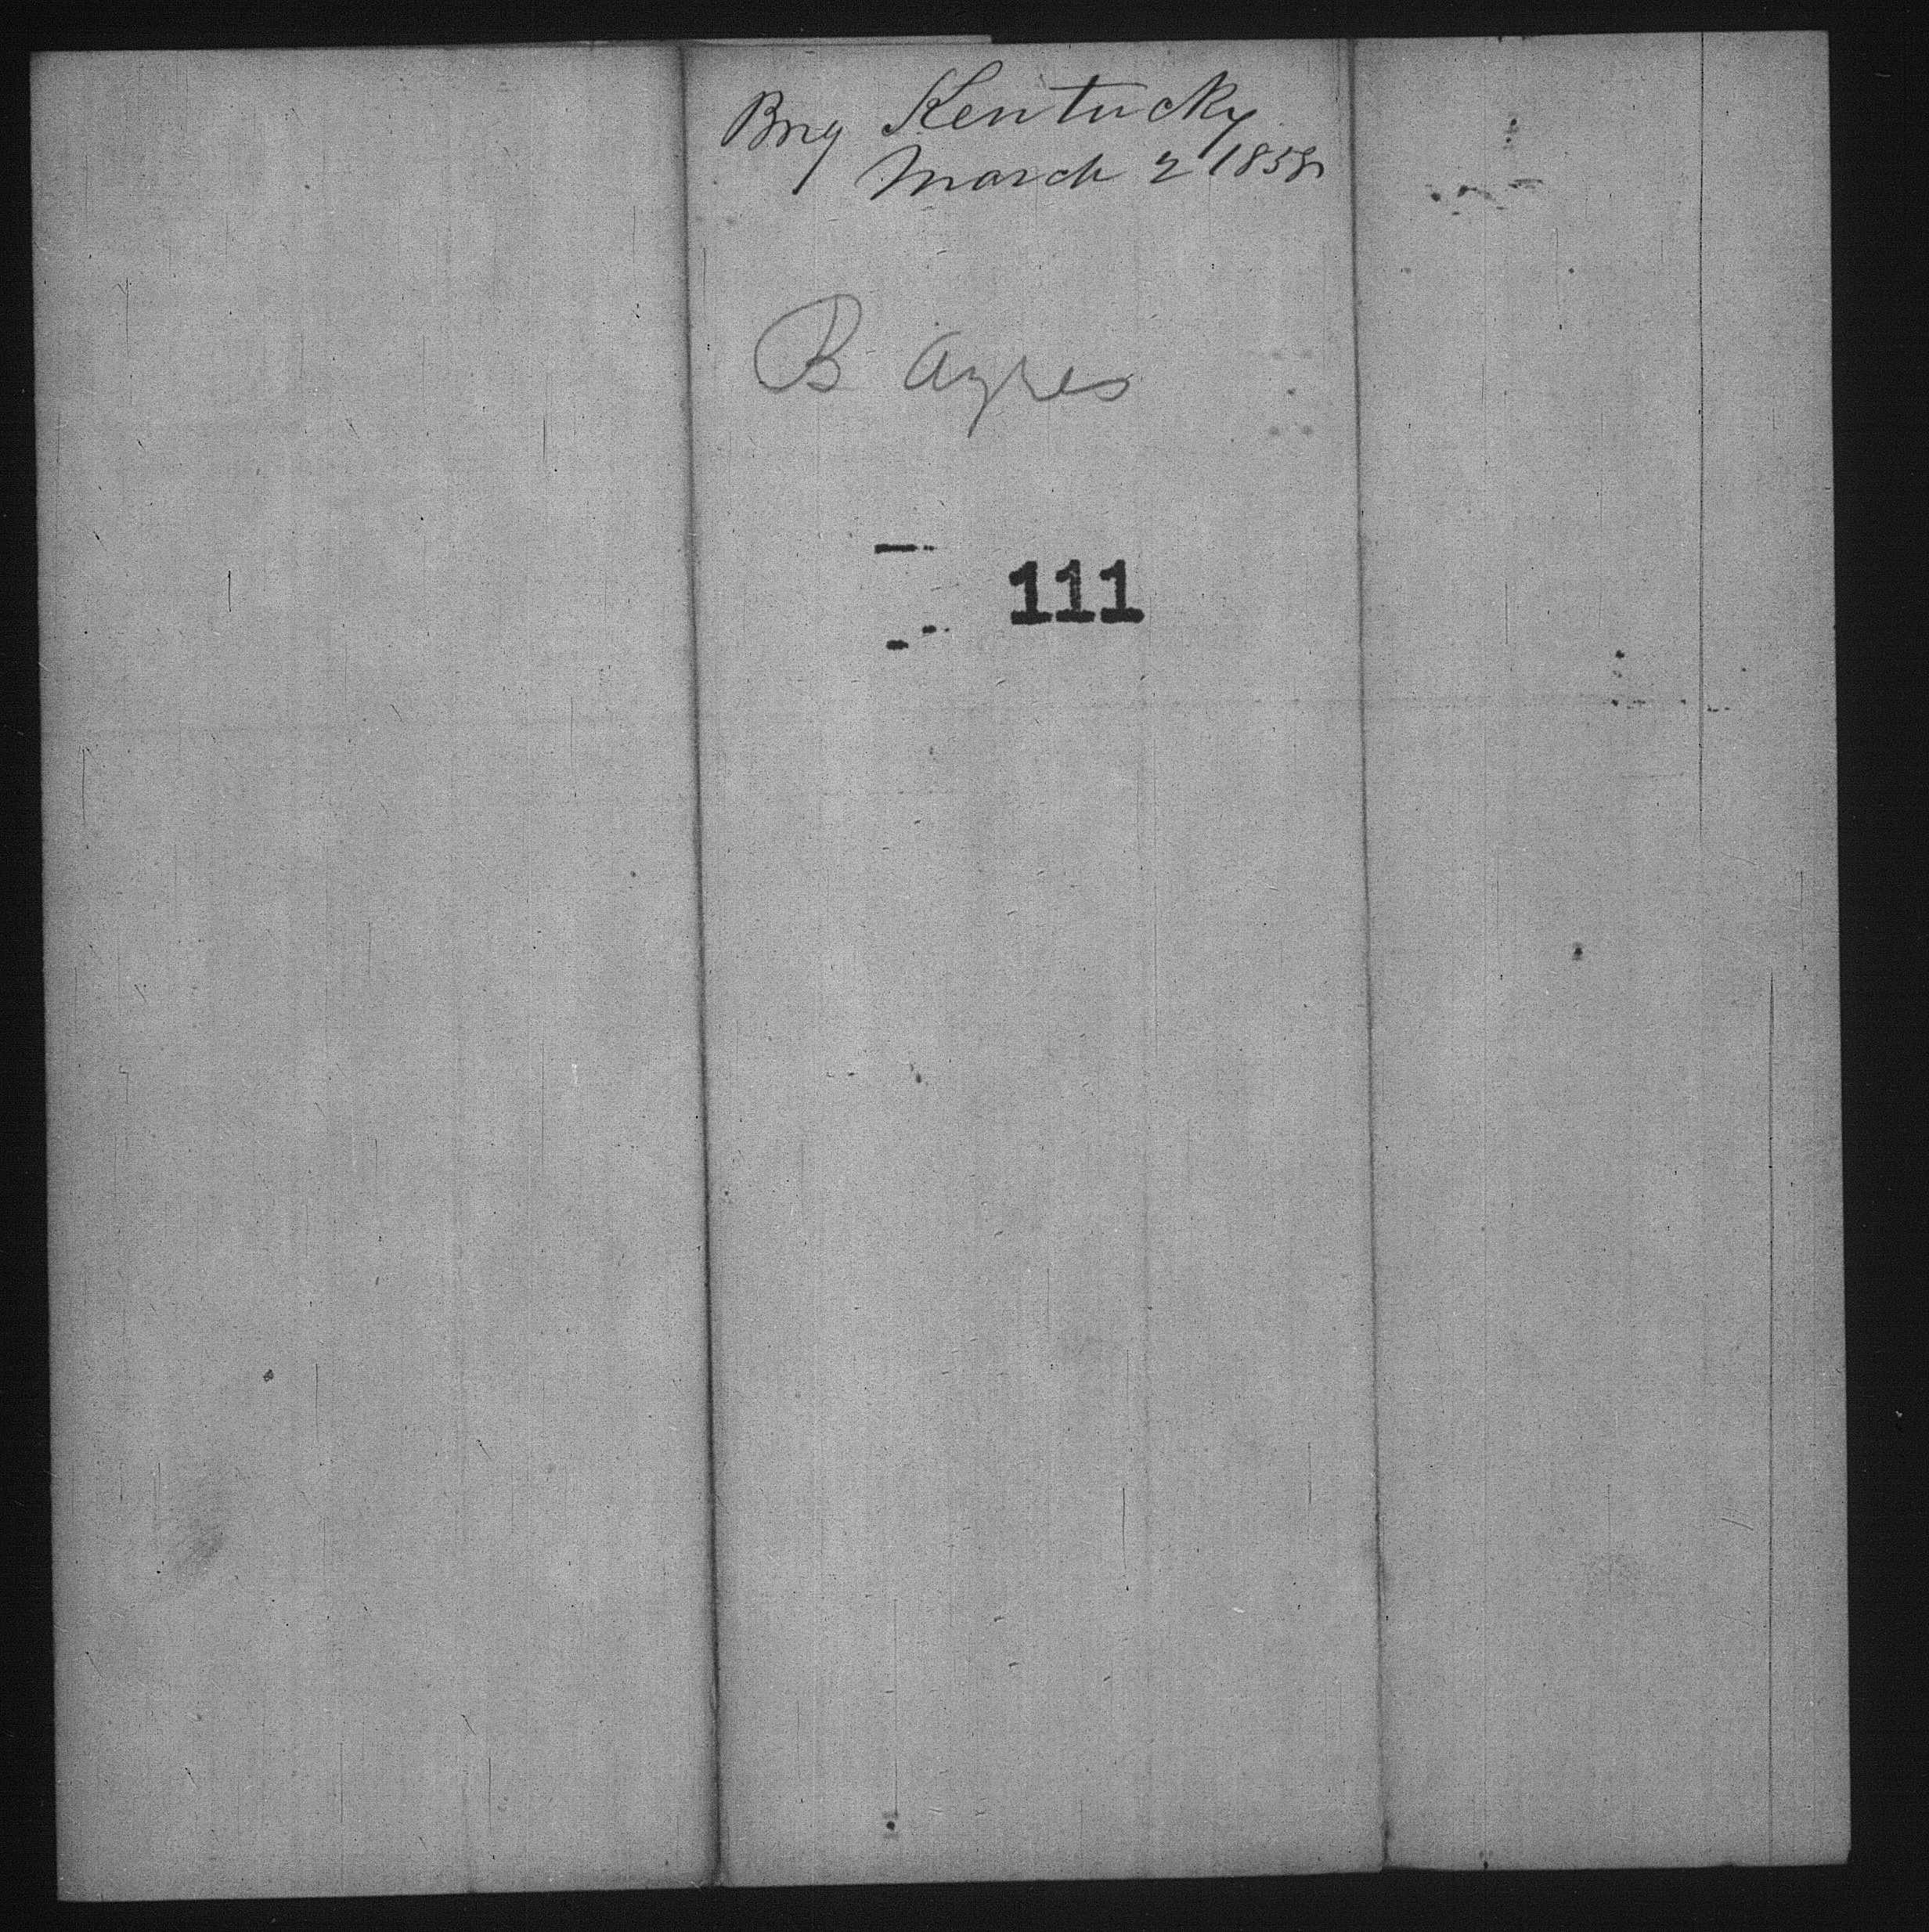 Brig Kentucky
March 2 1858
B Ayres
111